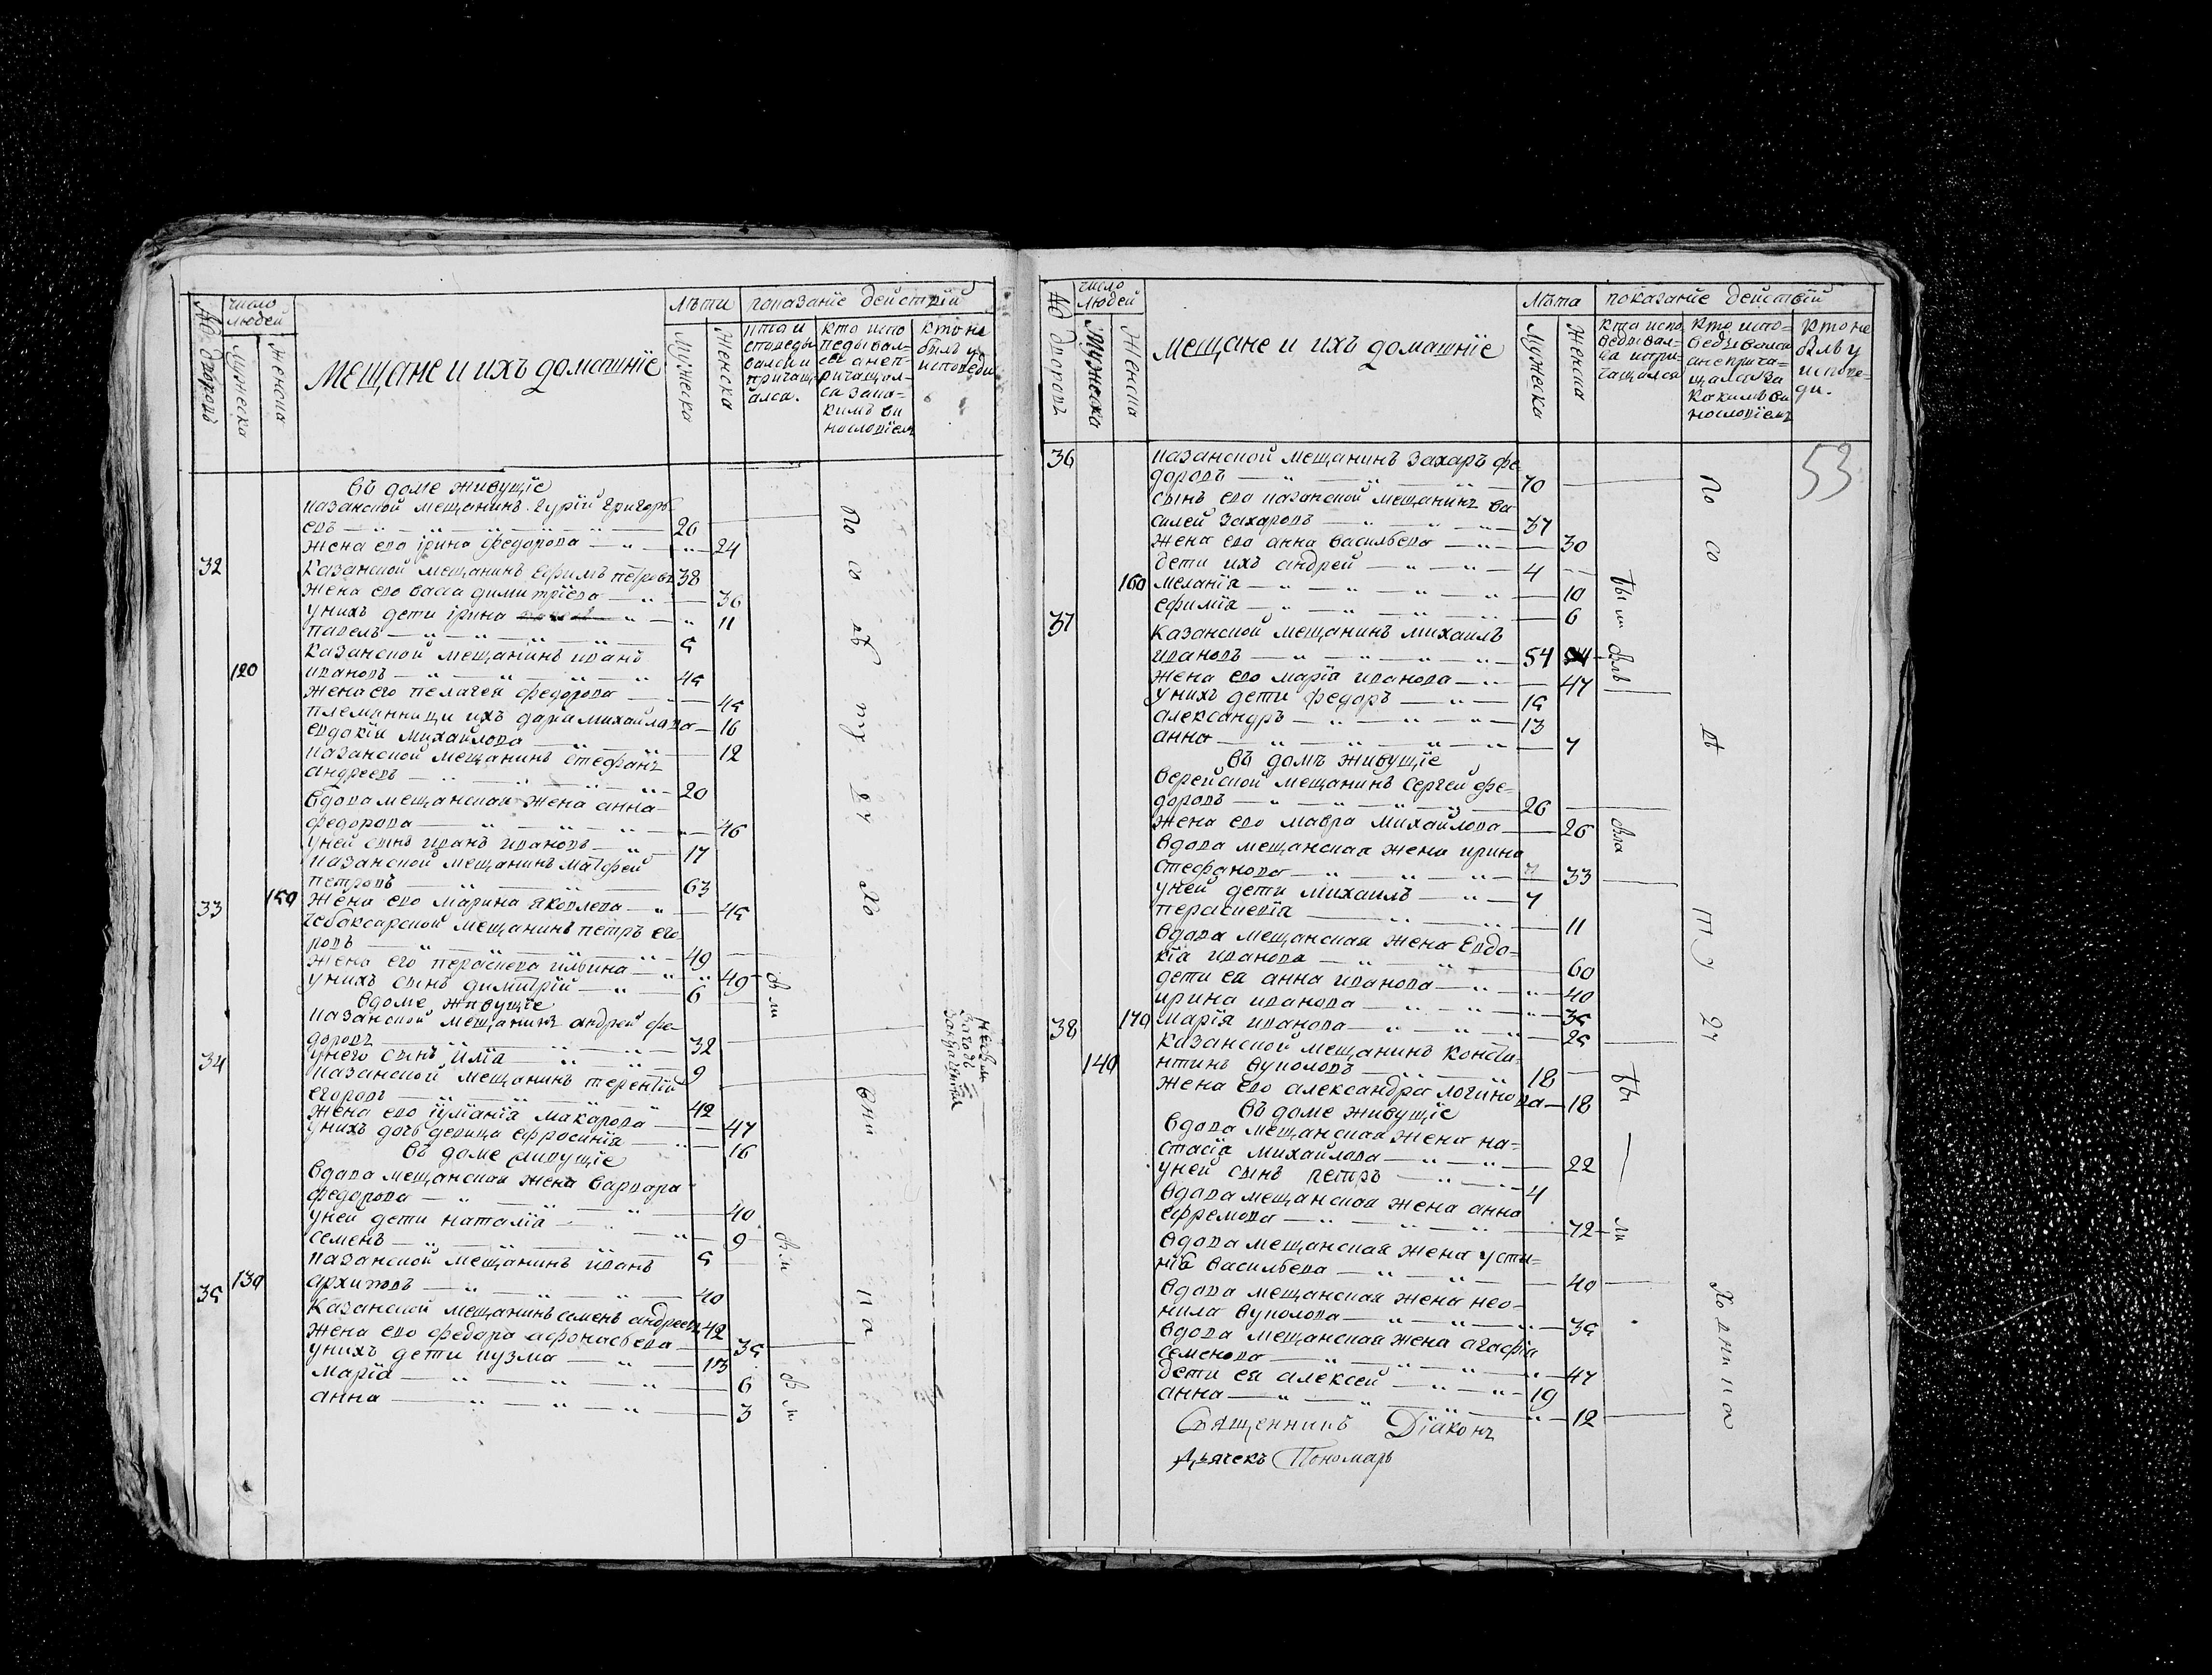 № дворовъ
число людей
Мужеска
Женска
Мещане и ихъ домашнїе
Лѣта
Мужеска
Женска
показанїе действїй
кто исповедывался и причащался.
кто исповедывался а не причащался за каким винословїемъ
кто не былъ у исповеди
въ доме живущїе
казанской мещанинъ гурїй григорь
евъ 26
жена ево ірина федорова 24
32 казанской мещанинъ ефимъ петровъ 38
жена ево васса димитрїева 36
у нихъ дети ірина 11
павелъ 5
казанской мещанинъ иванъ
120 ивановъ 45
жена его пелагея федорова 45
племянницы ихъ дарья михайлова 16
евдокїи михайлова 12
казанской мещанинъ стефанъ
андреевъ 20
вдова мещанская жена анна
федорова 46
у ней сынъ иванъ ивановъ 17
казанской мещанинъ матфей
петровъ 63
150 жена ево марина яковлева 45
33 чебоксарской мещанинъ петръ его
ровъ 49
жена его параскева ильина 49
у нихъ сынъ димитрїй 6
в доме живущїе
казанской мещанинъ андрей фе
доровъ 32
у него сынъ илїа 9
34 казанской мещанинъ терентїй
егоровъ 42
жена ево іулїанїа макарова 47
у нихъ дочь девица ефросинїа 16
въ доме живущїе
вдова мещанская жена варвара
федорова 40
у ней дети наталїа 9
семенъ 5
казанской мещанинъ иванъ
130 архиповъ 40
35 казанской мещанинъ семенъ андреевъ 42
жена ево федора афонасьева 35
у нихъ дети кузма 13
марїа 6
анна 3
№ дворовъ
число людей
Мужеска
Женска
мещане и ихъ домашнїе
Лѣта
Мужеска
Женска
показанїе действїй
кто исповедывался и причащался
кто исповедывался а не причащался за какимъ винословїемъ
кто не былъ у исповеди.
53
36 казанской мещанинъ захаръ фе
доровъ 70
сынъ ево казанской мещанинъ ва
силей захаровъ 37
жена ево анна васильева 30
дети ихъ андрей 4
160 меланїа 10
ефимїа 6
37 казанской мещанинъ михаилъ
ивановъ 54
жена ево марїа иванова 47
у нихъ дети федоръ 15
александръ 13
анна 7
въ домѣ живущїе
верейской мещанинъ сергей фе-
доровъ 26
жена ево мавра михайлова 26
вдова мещанская жена ирина
стефанова 33
у ней дети михаилъ 7
параскевїа 11
вдова мещанская жена евдо-
кїа иванова 60
дети ея анна иванова 40
ирина иванова 35
170 марїя иванова 25
38 казанской мещанинъ конста-
140 нтинъ вуколовъ 18
жена ево александра логинова 18
въ доме живущїе
вдова мещанская жена на-
стасїа михайлова 22
у ней сынъ петръ 4
вдова мещанская жена анна
ефремова 72
вдова мещанская жена усти-
нїа васильева 40
вдова мещанская жена нео-
нила вуколова 35
вдова мещанская жена агафїа
семенова 47
дети ея алексей 19
анна 12
Священникъ Дїаконъ
Дьячекъ Пономарь